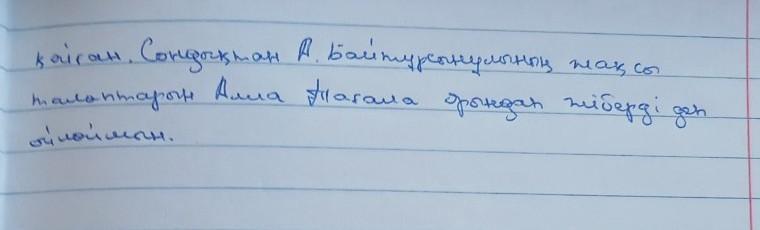 қайсан. Сондықтан А. Байтұрсынұлының жақсы
талаптарын Алла Тағала орындап жіберді деп
ойлаймын.